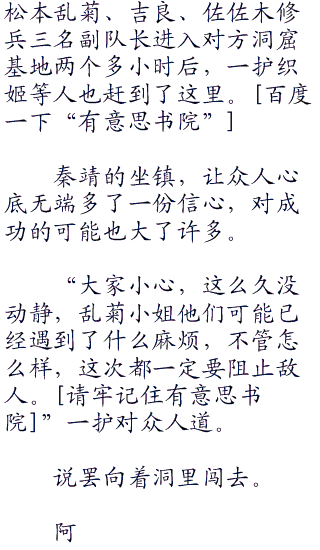 松本乱菊、吉良、佐佐木修
兵三名副队长进入对方洞窟
基地两个多小时后，一护织
姬等人也赶到了这里。[百度
一下“有意思书院”]
秦靖的坐镇，让众人心
底无端多了一份信心，对成
功的可能也大了许多。
“大家小心，这么久没
动静，乱菊小姐他们可能已
经遇到了什么麻烦，不管怎
么样，这次都一定要阻止敌
人。[请牢记住有意思书
院]”一护对众人道。
说罢向着洞里闯去。
阿